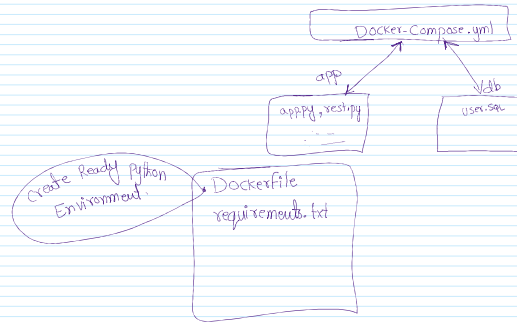 Docker-Compose.yml
app
db
app.py, rest.py
user.sql
Create Ready Python
Environment.
Dockerfile
requirements.txt